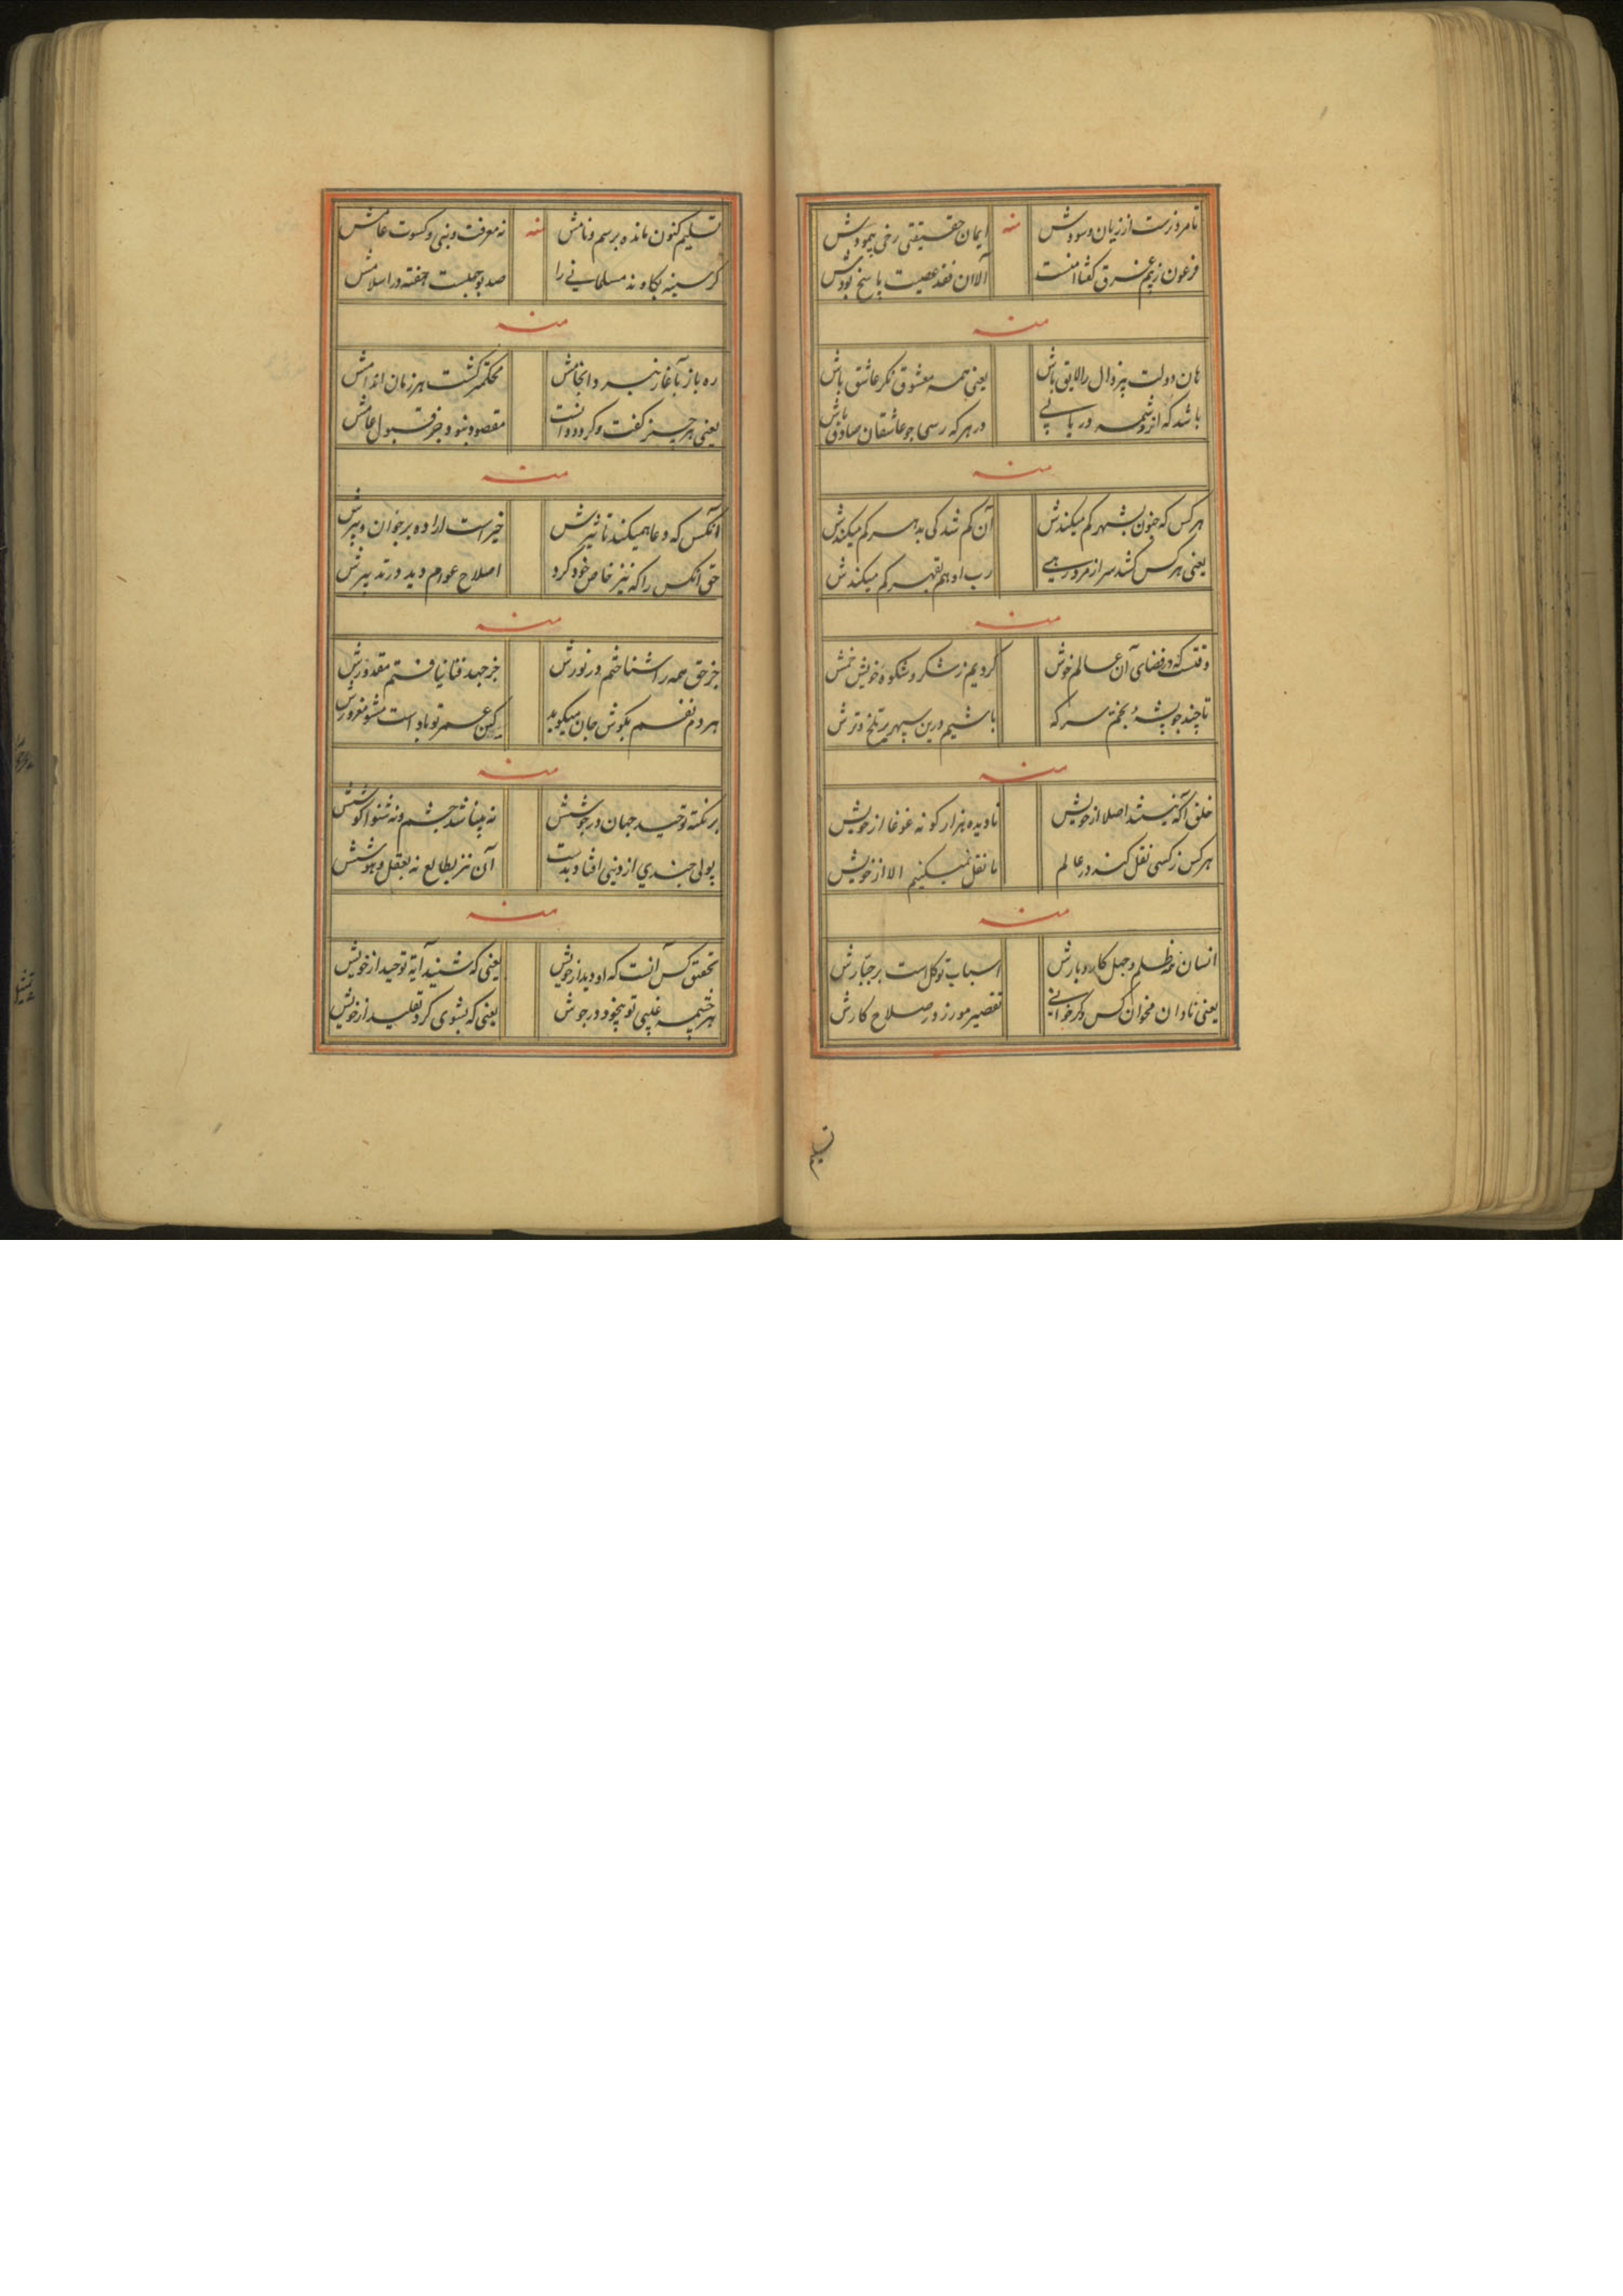 تا مرد نرست از زیان و سودش منه ایمان حقیقتی رخی ننمودش
فرعون ز بیم غرق گفتا امنت آلان فقد عصیت پاسخ بودش
منه
هان دولت بیزوال را لایق باش یعنی همه معشوق نگر عاشق باش
باشد که ازو شمه دریابی در هر که رسی چو عاشقان صادق باش
منه
هر کس که جنون بشهر کم میکندش آن کم شدکی بدهر کم میکندش
یعنی هر کس کشد سر از مرد رهی رب او هم بقهر کم میکندش
منه
وقتست که در فضای آن عالم خوش کردیم ز شکر و شکوه خویش خمش
تا چند چو پشه بخم سرکه باشیم درین سپهر تلخ و ترش
منه
خلق آگه نیستند اصلا از خویش نادیده هزار گونه غوغا از خویش
هر کس ز کسی نقل کند در عالم ما نقل نمیکنیم الا از خویش
منه
انسان همه ظلم و جهل کار و بارش اسباب توکل است بر جبارش
یعنی نادان مخوان کس و گر خوانی تقصیر مورز در صلاح کارش
تسلیم کنون مانده برسم و نامش منه نه معرفت و نبی و کسوت عامش
گر سینه بکاوند مسلمانی را صد بوجهلست خفته در اسلامش
منه
ره باز بآغاز نبرد انجامش محکمتر گشت هر زمان اندامش
یعنی هر چیز گفت و کرد و دانست مقصود نبود جز قبول عامش
منه
آنکس که دعا همیکند تاثیرش خیر است اراده بر جوان و پیرش
حق آنکس را که نیز خاص خود کرد اصلاح عوام دید در تدبیرش
منه
جز حق همه را شناختم در نورش جز جهد فنا نیافتم مقدورش
هر دم نفسم بگوش جان میگوید کین عمر تو باد است مشو مغرورش
منه
بر نکته توحید جهان در جوشش نه بینا شد چشم و نه شنوا گوشش
منه
تحقیق کس آنست که او دید از خویش یعنی که شنید آیه توحید از خویش
هر چشمه غلپی تو بیخود در جوش یعنی که بشوی گرد تقلید از خویش